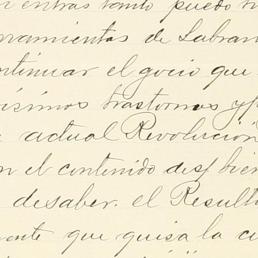 entras tanto puedo
ramientas de Labran
ntinuar el gocio que
isimos trastornos y p
actual Revolucion
n el contenido de sf bien
desaber. el Result
onte que quisa la